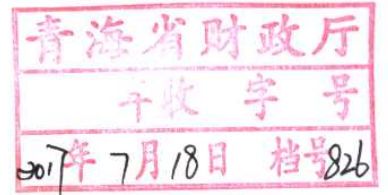 青海省财政厅
收 字 号
2017年 7月18日 档号826